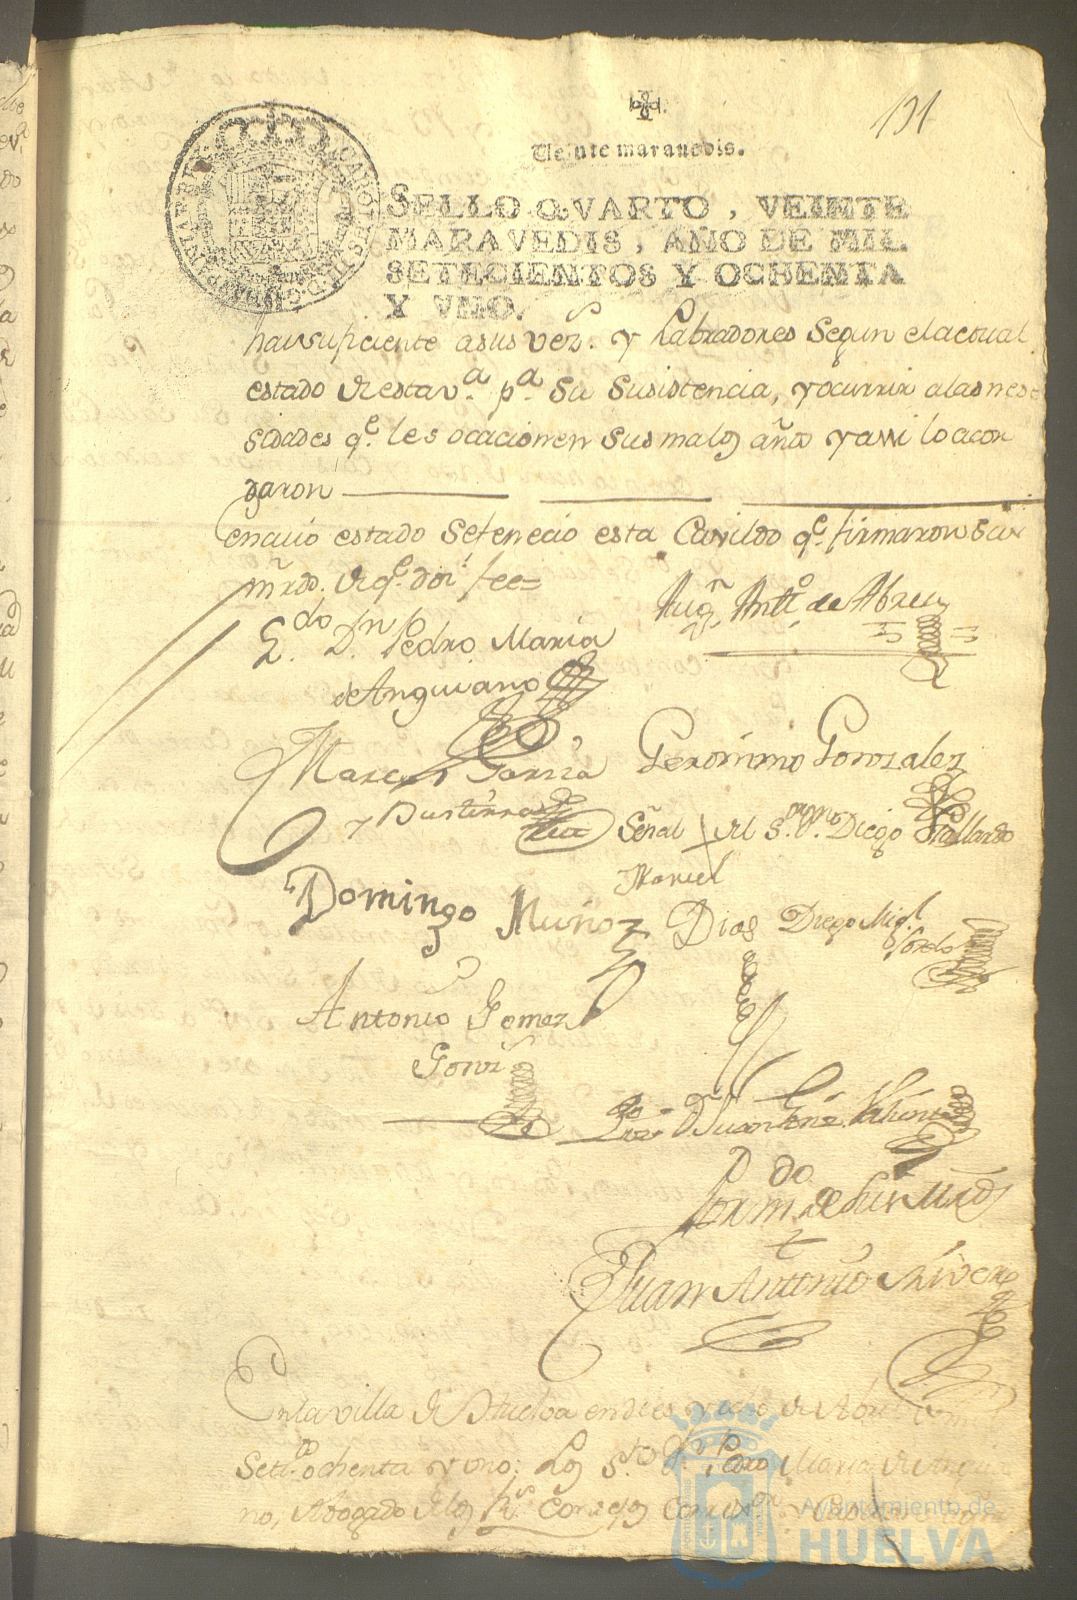 131
Veinte maravedis.
SELLO QVARTO, VEINTE
MARAVEDIS, AÑO DE MIL
SETECIENTOS Y OCHENTA
Y VNO.
asus vez.s y Labradores segun el actual
estado de esta v.a p.a su susistencia, y ocurrir a las nese
sidades q.e les ocacionen sus malos años y assi lo acor
daron
en cuio estado se fenecio este Cavildo q.e firmaron sus
mrds. de q.e doi fee=
L.do D.n Pedro Maria
de Anguiano
Aug.n Ant.o de Abreu
Marcos Garcia
Geronimo Gonzalez
y Bustierra
Señal del S.or D.n Diego Gallardo
Moriel
Domingo Muñoz
Dias
Diego Mig.l
Sorelo
Antonio Gomez
Gonz
D. Juan
por m.do de sus Mrds
Juan Antonio Rivera
En la villa de Huelva en dies y ocho de Abril de mil
Set.s ochenta y uno; Los S.res D.n Pedro Maria de Anguia
no, Abogado de los R.s Consejos Corex.or
Ayuntamiento de
HUELVA